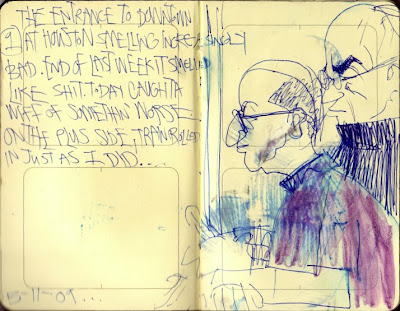 THE ENTRANCE TO DOWNTOWN
① AT HOUSTON SMELLING INCREASINGLY
BAD. END OF LAST WEEK IT SMELLED
LIKE SHIT. TODAY CAUGHT A
WIFF OF SOMETHIN WORSE.
ON THE PLUS SIDE, TRAIN ROLLED
IN JUST AS I DID....
13-11-09...